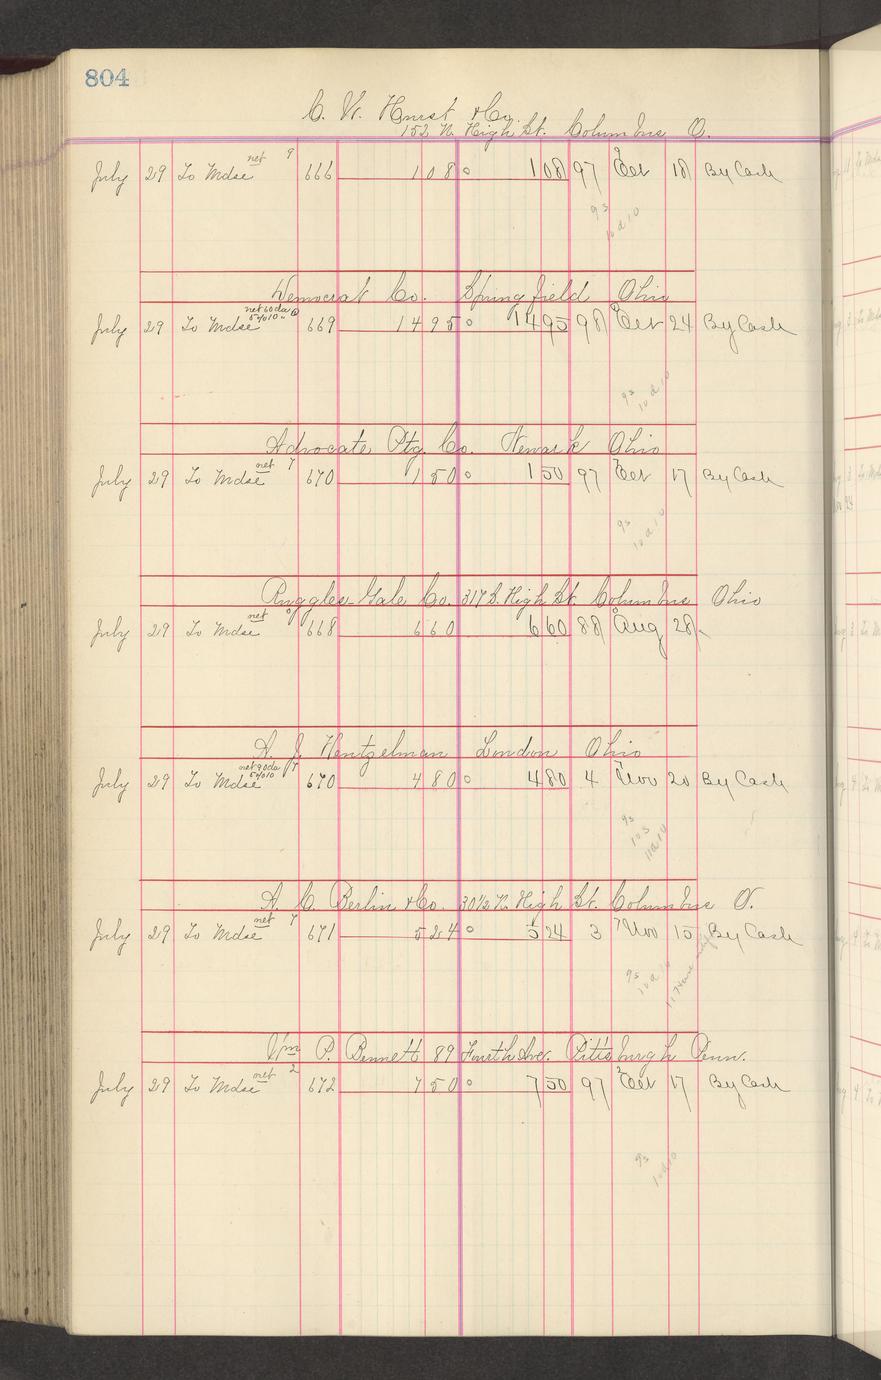 804
C. W. Hurst & Co.
152 N. High St. Columbus O.
net 9
July 29 To Mdse 666 108 o 108 97 Oct 18 By Cash
9s
10 d 10
Democrat Co. Springfield Ohio
net 60 da
5% 10 "
July 29 To Mdse 669 1495 o 1495 98 Oct 24 By Cash
9s
10 d 10
Advocate Ptg. Co. Newark Ohio
net 7
July 29 To Mdse 670 150 o 150 97 Oct 17 By Cash
9s
10 d 10
Ruggles-Gale Co. 317 S. High St. Columbus Ohio
net
July 29 To Mdse 668 660 660 88 Aug 28
A. J. Hentzelman London Ohio
net 90 da 7
5% 10
July 29 To Mdse 670 480 o 480 4 Nov 20 By Cash
9s
10 s
11 d 14
A. C. Berlin & Co. 30½ N. High St. Columbus O.
net 7
July 29 To Mdse 671 524 o 524 3 Nov 15 By Cash
9s
10 d 10
Wm P. Bennett 89 Fourth Ave. Pittsburgh Penn.
net 2
July 29 To Mdse 672 750 o 750 97 Oct 17 By Cash
9s
10 d 10